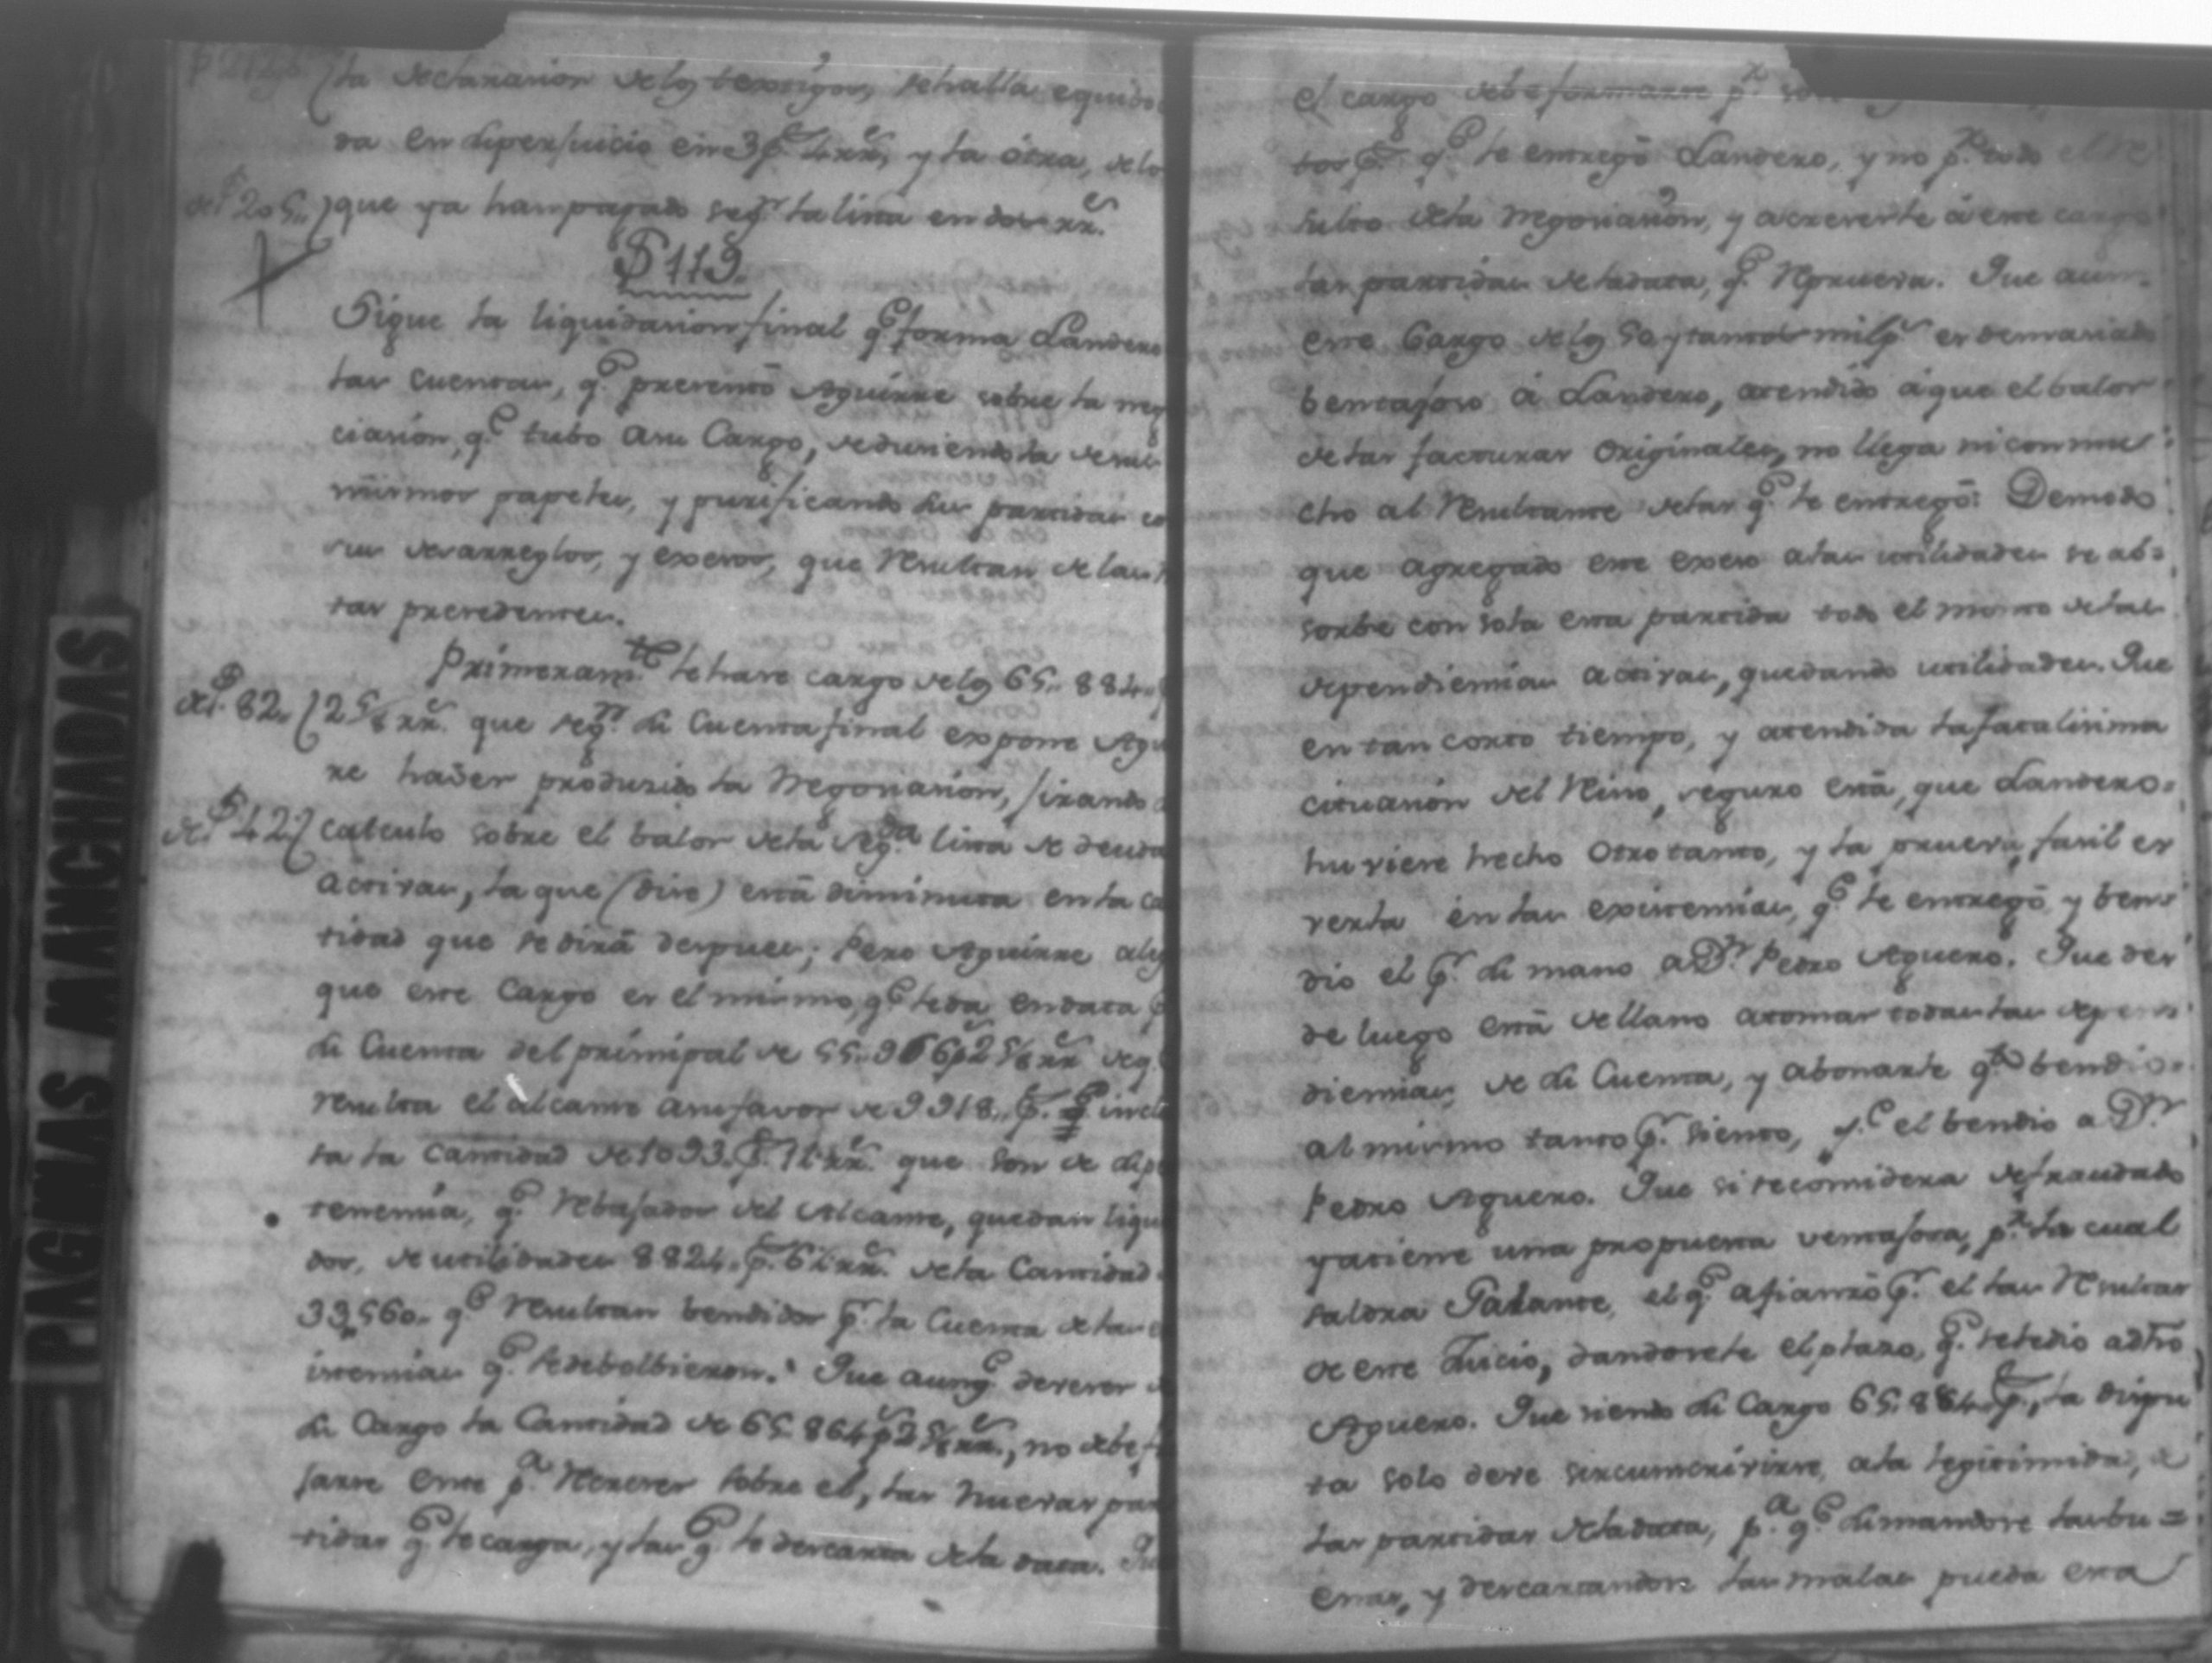 la declarasion delos testigos, se halla equiboca
da en su perjuicio en 3 p.s 4 rr.s, y la ótra, de lo
§ 205.. que ya han pagado seg.n la lista en dos rr.s
§ 119.
Sigue la liquidasion final q.e forma Landero
las cuentas, q.e presentó Aguirre sobre la nego
ciasión, q.e tubo a su Cargo, deduciendola de sus
mismos papeles, y purificando sus partidas co
sus desarreglos, y exesos, que Resultan de las
tas precedentes.
Primeram.te le hase cargo delos 65.. 884..
del § 82.. 2 5/8 rr.s que seg.n su Cuenta final expone Agui
rre haver produsido la Negosiasión, jirando
del § 42 calculo sobre el balor dela seg.da lista de deudas
activas, la que (dise) está diminuta en la ca
tidad que se dirá despues; Pero Aguirre aleg
que este Cargo es el mismo, q.e le da en data
su Cuenta del prinsipal de 55..966 p.s 2 5/8 rr.s seg
resulta el alcanse a su favor de 9918.. p.s q.e inclu
sa la cantidad de 1093.. p.s 1 1/2 rr.s que son de su per
tenensia, q.e Rebajados del Alcanse, quedan liqui
dos, de utilidades 8824.. p.s 6 1/2 rr.s dela Cantidad
33,560.. q.e Resultan bendidos p.r la Cuenta delas e
istensias q.e le debolbieron. Que aunq.e deve ser
su Cargo la Cantidad de 65..864 p.s 2 5/8 rr.s, no debe
jarse este p.a Recreser sobre el, las nuevas par
tidas q.e le carga, y las q.e le descarta dela data. Que
el cargo debe formarse p.r
tos p.s q.e le entregó Landero, y no p.r todo el re
sulto dela Negosiasión, y acreserle á este cargo
las partidas dela data, q.e Reprueva. Que aun
este Cargo delos se y tantos mil p.s es demasiado
bentajoso á Landero, atendido áque el balor
de las facturas Originales, no llega ni con mu
cho al Resultante delas q.e le entregó: De modo
que agregado este exeso alas utilidades se ab=
sorbe con sola esta partida todo el monto delas
dependiensias activas, quedando utilidades. Que
en tan corto tiempo, y atendida la fatalisima
cituasión del Reino, seguro está, que Landero
huviere hecho Otro tanto, y la prueva fasil es
verla én las existensias, q.e le entregó, y ben
dio el p.r su mano a D.n Pedro Aguero. Que des
de luego está de llano a tomar todas las depen
diensias, de su Cuenta, y abonarle q.to bendio
al mismo tanto p.r siento, q.e el bendio a D.n
Pedro Aguero. Que si se considera defraudado
ya tiene una propuesta ventajosa, p.a la cual
saldra Galante, el q.e afianzó p.r el las Resultas
de este Juicio, dandosele el plazo, q.e se le dio a dho
Aguero. Que siendo su Cargo 65.. 864.. p.s, la dispu
ta solo deve sircunscrivirse, ala legitimidad, de
las partidas dela data, p.a q.e sumandose las bu=
enas, y descartandose las malas pueda esta
PAGINAS MANCHADAS